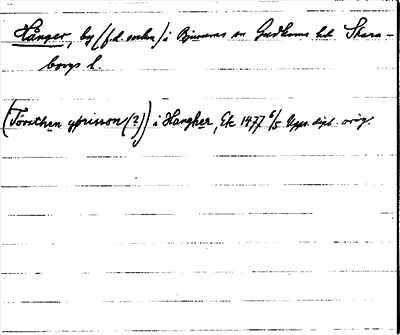 Hånger, by (f.d. socken) i Bjurums sn Gudhems hd Skara-
borgs l.
(Torsthen yprisson (?)) i Hangher, Ek 1477 6/5 Upps. dipl. orig.